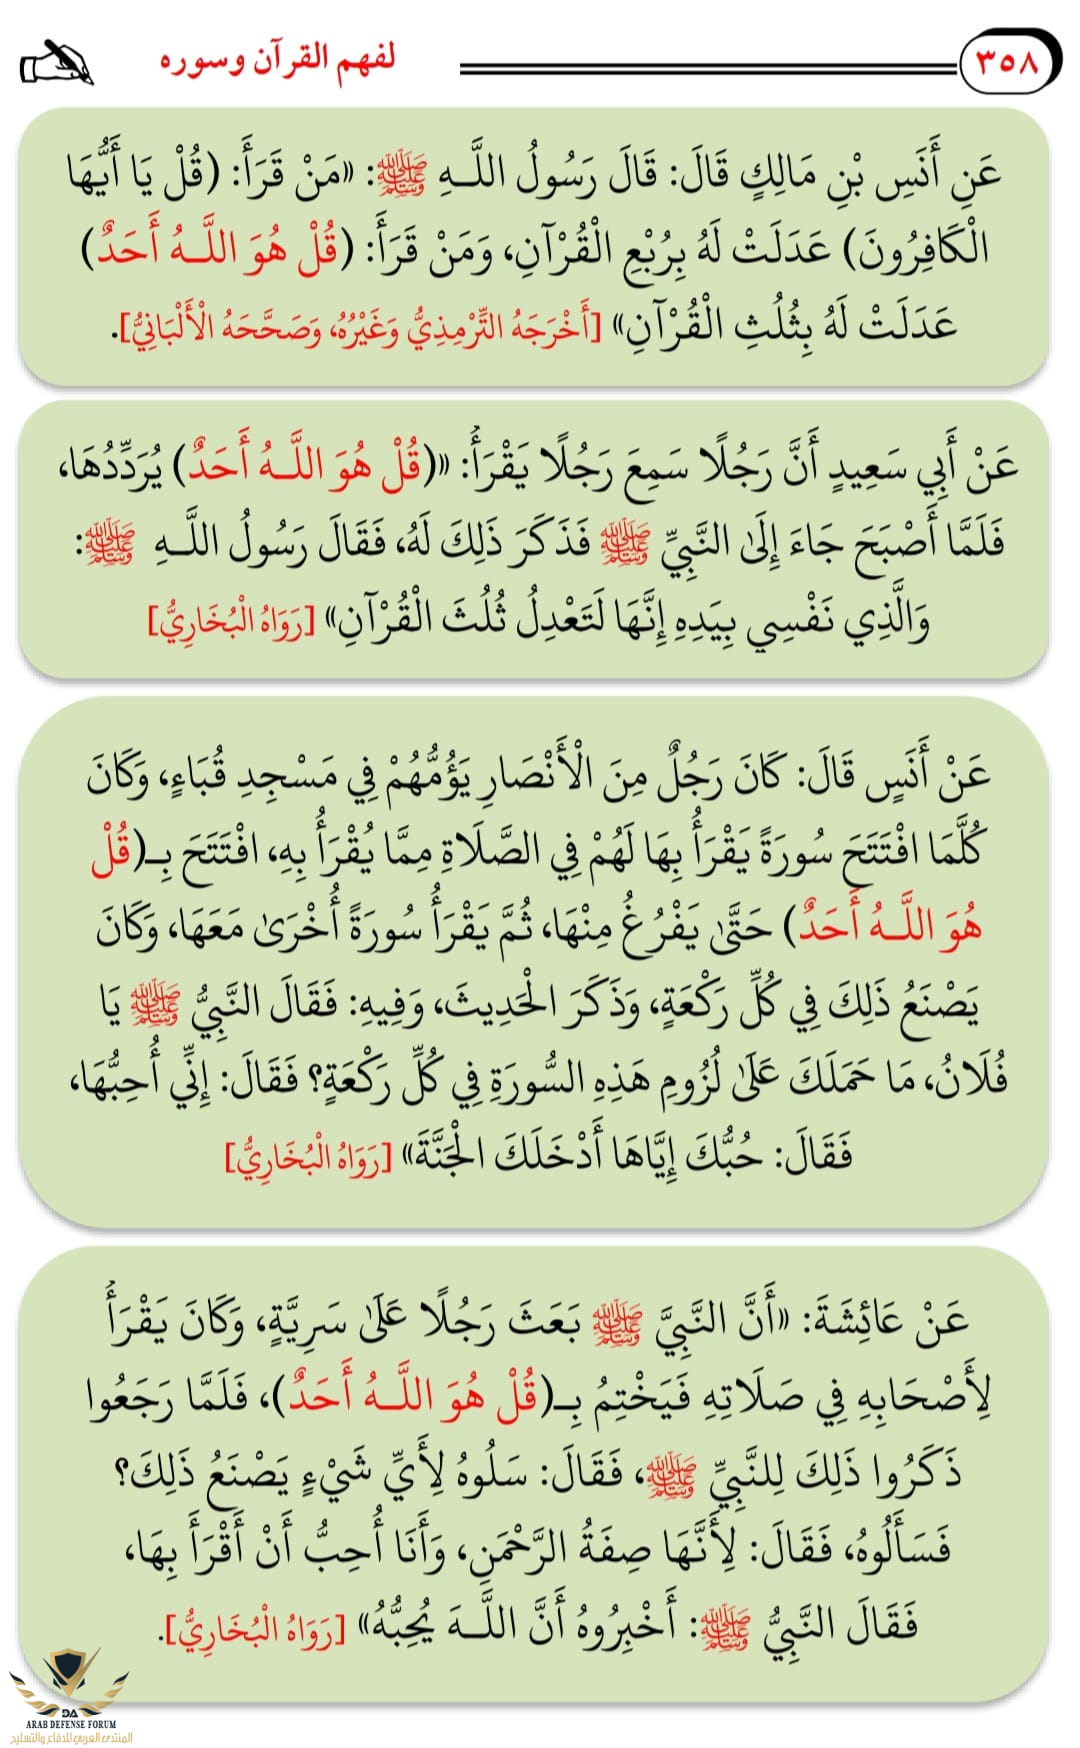 ٣٥٨
لفهم القرآن وسوره
عَنِ أَنَسِ بْنِ مَالِكٍ قَالَ: قَالَ رَسُولُ اللَّـهِ ﷺ: «مَنْ قَرَأَ: (قُلْ يَا أَيُّهَا
الْكَافِرُونَ) عَدَلَتْ لَهُ بِرُبْعِ الْقُرْآنِ، وَمَنْ قَرَأَ: (قُلْ هُوَ اللَّـهُ أَحَدٌ)
عَدَلَتْ لَهُ بِثُلُثِ الْقُرْآنِ» [أَخْرَجَهُ التِّرْمِذِيُّ وَغَيْرُهُ، وَصَحَّحَهُ الْأَلْبَانِيُّ].
عَنْ أَبِي سَعِيدٍ أَنَّ رَجُلًا سَمِعَ رَجُلًا يَقْرَأُ: «(قُلْ هُوَ اللَّـهُ أَحَدٌ) يُرَدِّدُهَا،
فَلَمَّا أَصْبَحَ جَاءَ إِلَىٰ النَّبِيِّ ﷺ فَذَكَرَ ذَلِكَ لَهُ، فَقَالَ رَسُولُ اللَّـهِ ﷺ:
وَالَّذِي نَفْسِي بِيَدِهِ إِنَّهَا لَتَعْدِلُ ثُلُثَ الْقُرْآنِ» [رَوَاهُ الْبُخَارِيُّ]
عَنْ أَنَسٍ قَالَ: كَانَ رَجُلٌ مِنَ الْأَنْصَارِ يَؤُمُّهُمْ فِي مَسْجِدِ قُبَاءٍ، وَكَانَ
كُلَّمَا افْتَتَحَ سُورَةً يَقْرَأُ بِهَا لَهُمْ فِي الصَّلَاةِ مِمَّا يُقْرَأُ بِهِ، افْتَتَحَ بِـ(قُلْ
هُوَ اللَّـهُ أَحَدٌ) حَتَّىٰ يَفْرُغُ مِنْهَا، ثُمَّ يَقْرَأُ سُورَةً أُخْرَىٰ مَعَهَا، وَكَانَ
يَصْنَعُ ذَلِكَ فِي كُلِّ رَكْعَةٍ، وَذَكَرَ الْحَدِيثَ، وَفِيهِ: فَقَالَ النَّبِيُّ ﷺ يَا
فُلَانُ، مَا حَمَلَكَ عَلَىٰ لُزُومِ هَذِهِ السُّورَةِ فِي كُلِّ رَكْعَةٍ؟ فَقَالَ: إِنِّي أُحِبُّهَا،
فَقَالَ: حُبُّكَ إِيَّاهَا أَدْخَلَكَ الْجَنَّةَ» [رَوَاهُ الْبُخَارِيُّ]
عَنْ عَائِشَةَ: «أَنَّ النَّبِيَّ ﷺ بَعَثَ رَجُلًا عَلَىٰ سَرِيَّةٍ، وَكَانَ يَقْرَأُ
لِأَصْحَابِهِ فِي صَلَاتِهِ فَيَخْتِمُ بِـ(قُلْ هُوَ اللَّـهُ أَحَدٌ)، فَلَمَّا رَجَعُوا
ذَكَرُوا ذَلِكَ لِلنَّبِيِّ ﷺ، فَقَالَ: سَلُوهُ لِأَيِّ شَيْءٍ يَصْنَعُ ذَلِكَ؟
فَسَأَلُوهُ، فَقَالَ: لِأَنَّهَا صِفَةُ الرَّحْمَنِ، وَأَنَا أُحِبُّ أَنْ أَقْرَأَ بِهَا،
فَقَالَ النَّبِيُّ ﷺ: أَخْبِرُوهُ أَنَّ اللَّـهَ يُحِبُّهُ» [رَوَاهُ الْبُخَارِيُّ].
DA
ARAB DEFENSE FORUM
المنتدى العربي للدفاع والتسليح